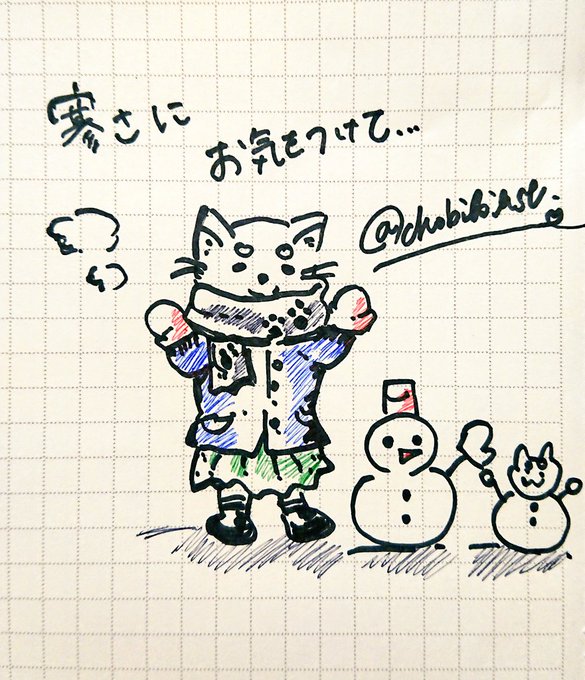 寒さに
お気をつけて…